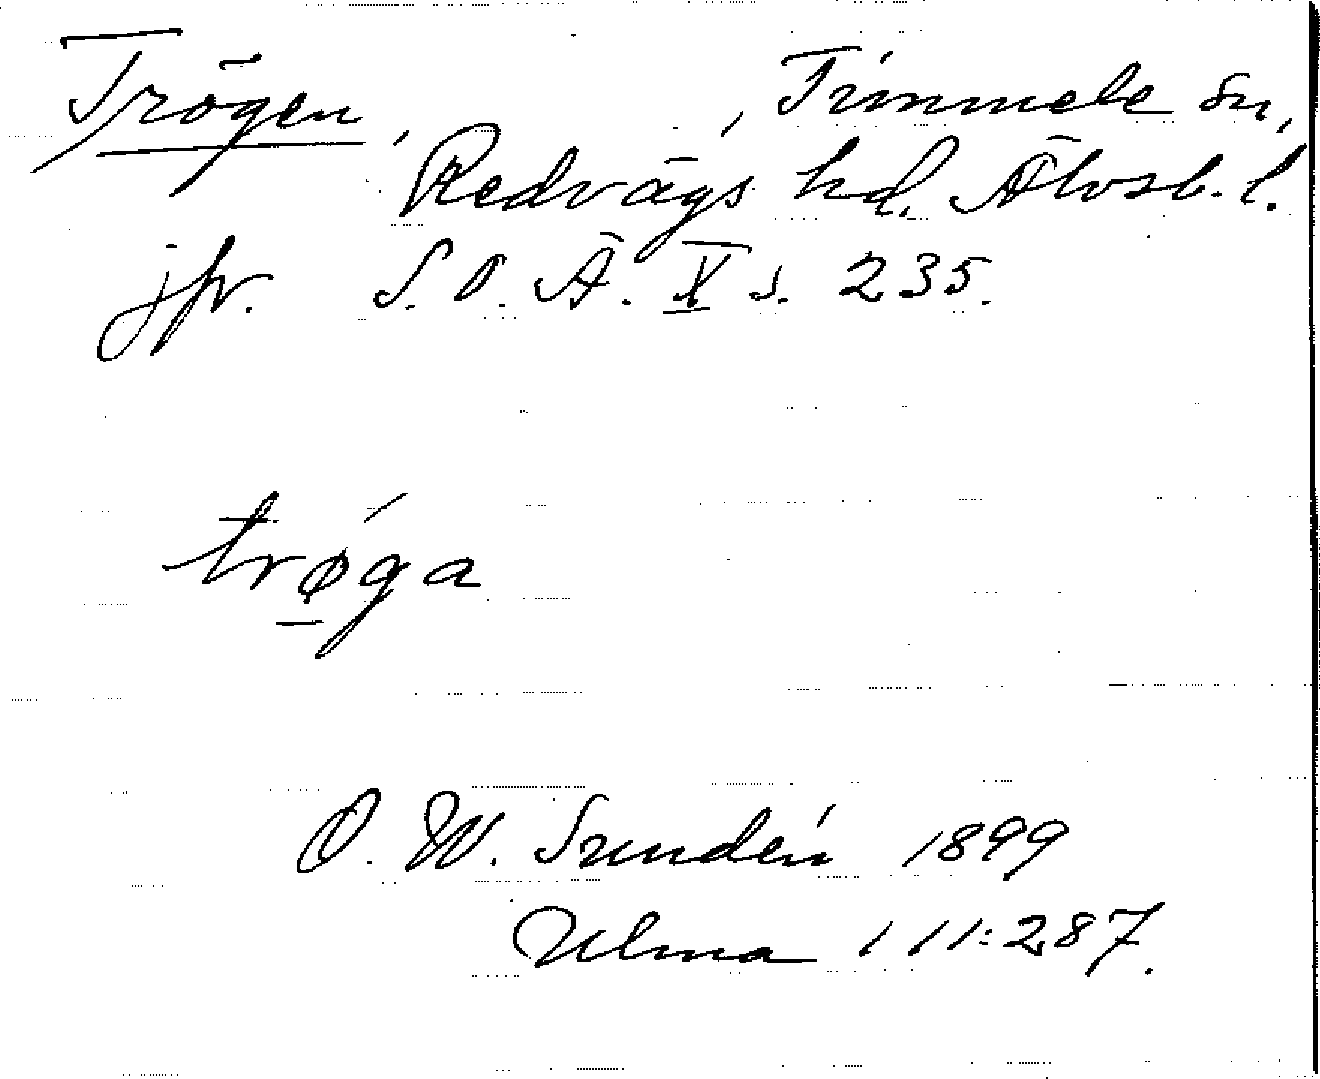 Trögen, , Timmele sn,
Redvägs hd. Älvsb. l.
jfr. S. O. Ä. X s. 235.
trø̲´ga
O. W. Sundén 1899
Ulma 111:287.